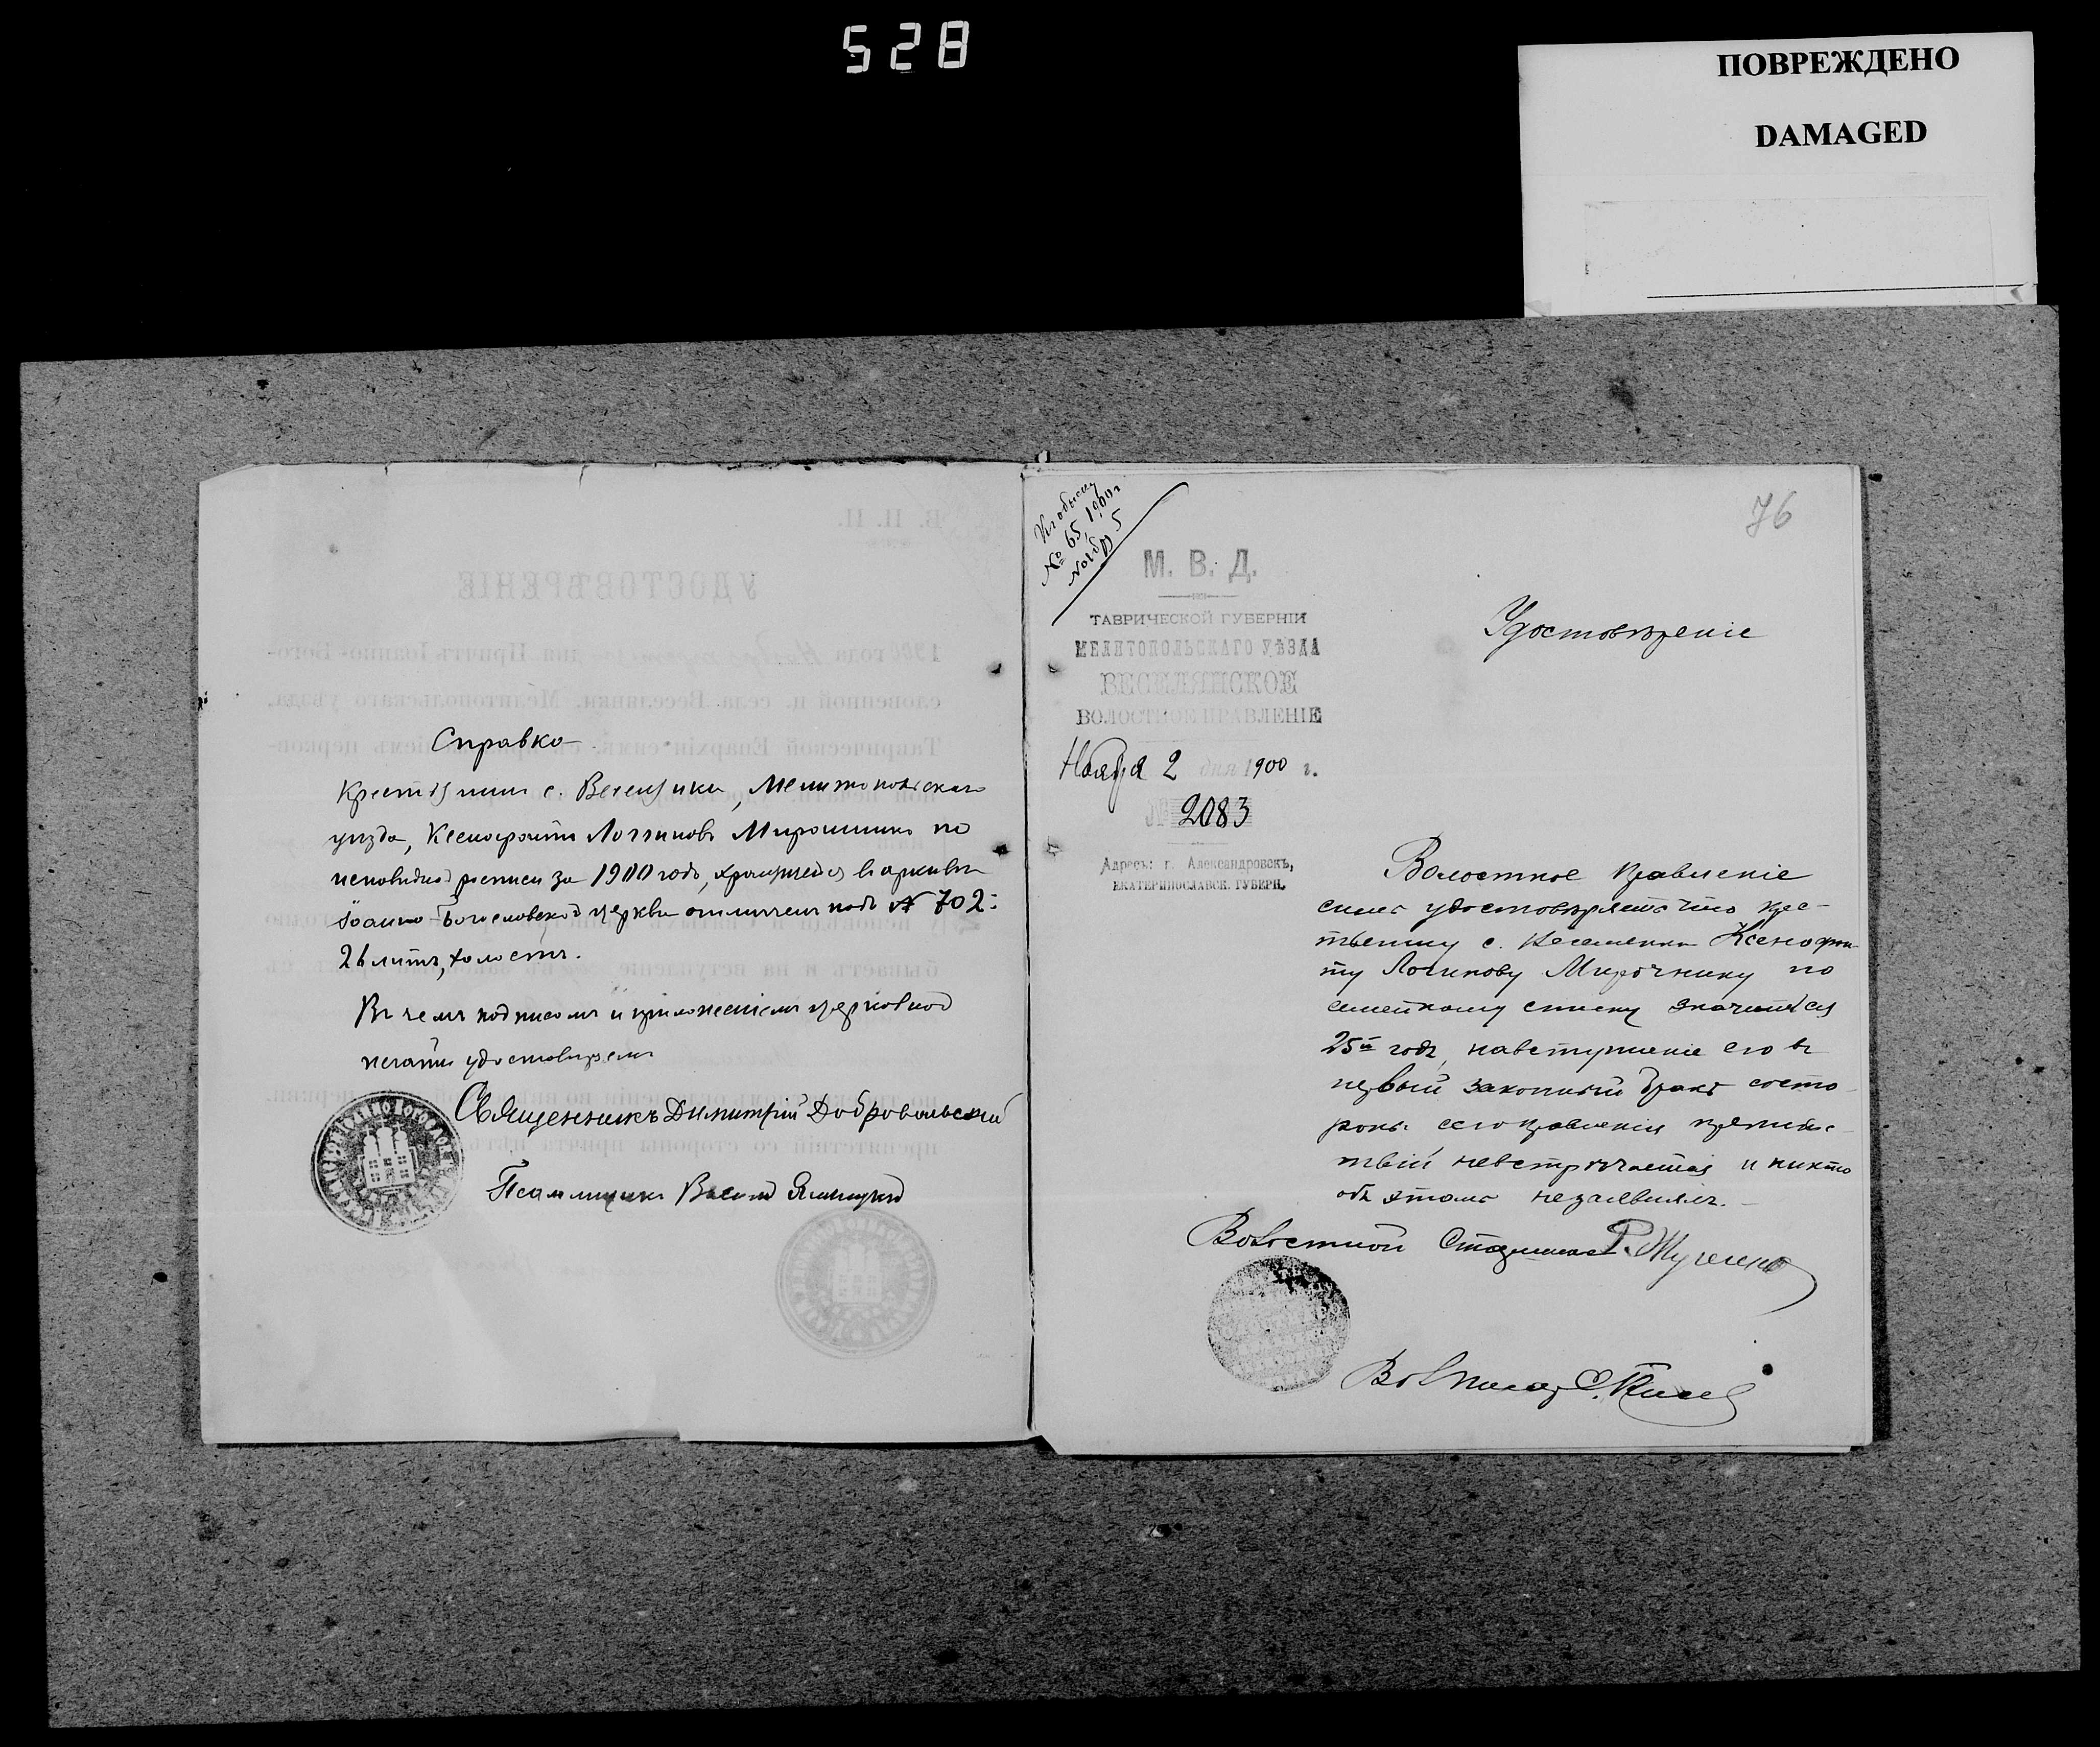 528
ПОВРЕЖДЕНО
DAMAGED
Справка
Крестьянин с. Веселянки, Мелитопольскаго
уѣзда, Ксенофонтъ Логгиновъ Мирошник по
исповѣдной росписи за 1900 годъ, хранящейся въ архивѣ
Іоанно-Богословской церкви отмѣченъ подъ № 702:
26 лѣтъ, холостъ.
В чемъ подписомъ и приложеніемъ церковной
печати удостовѣряемъ
Священникъ Димитрій Добровольскій
Псаломщикъ
76
К обыску
№ 65, 1900 г.
Ноября 5
М. В. Д.
ТАВРИЧЕСКОЙ ГУБЕРНІИ
МЕЛИТОПОЛЬСКАГО УѢЗДА
ВЕСЕЛЯНСКОЕ
ВОЛОСТНОЕ ПРАВЛЕНІЕ
Ноября 2 дня 1900 г.
№ 2083
Адресъ: г. Александровскъ,
ЕКАТЕРИНОСЛАВСК. ГУБЕРН.
Удостовѣреніе
Волостное Правленіе
симъ удостовѣряетъ что крес-
тьянину с. Веселянки Ксенофон-
ту Логинову Мирочнику по
семейному списку значится
25й годъ, на вступленіе его въ
первый законный бракъ со сто
роны сего правленія препятс-
твій невстрѣчается и никто
объ этомъ незаявлялъ.
Волостной Старшина
Вол Писарь